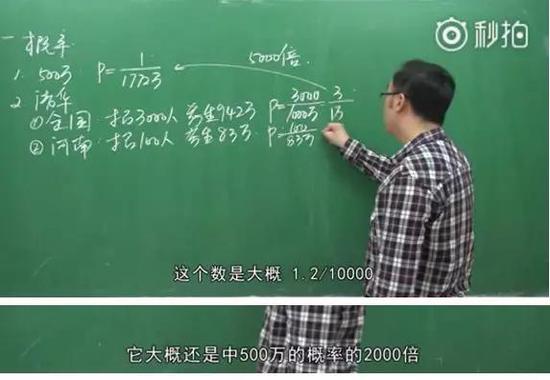 秒拍
一 概率
5000倍
1. 500万 P=1/1772万
2. 清华
① 全国: 招3000人 考生942万 P=3000/1000万 3/1万
② 河南: 招100人 考生83万 P=100/83万
这个数是大概 1.2/10000
它大概还是中500万的概率的2000倍